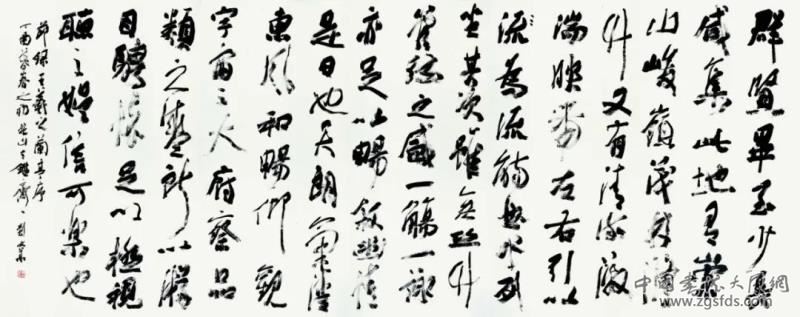 群賢畢至少長
咸集此地有崇
山峻嶺茂林修
竹又有清流激
湍映帶左右引以
流為流觴曲水列
坐其次雖無絲竹
管絃之盛一觴一詠
亦足以暢敘幽情
是日也天朗氣清
惠風和暢仰觀
宇宙之大府察品
類之盛所以游
目騁懷足以極視
聽之娛信可樂也
節録王羲之蘭亭序
丁酉暮春之初
www.zgsfds.com